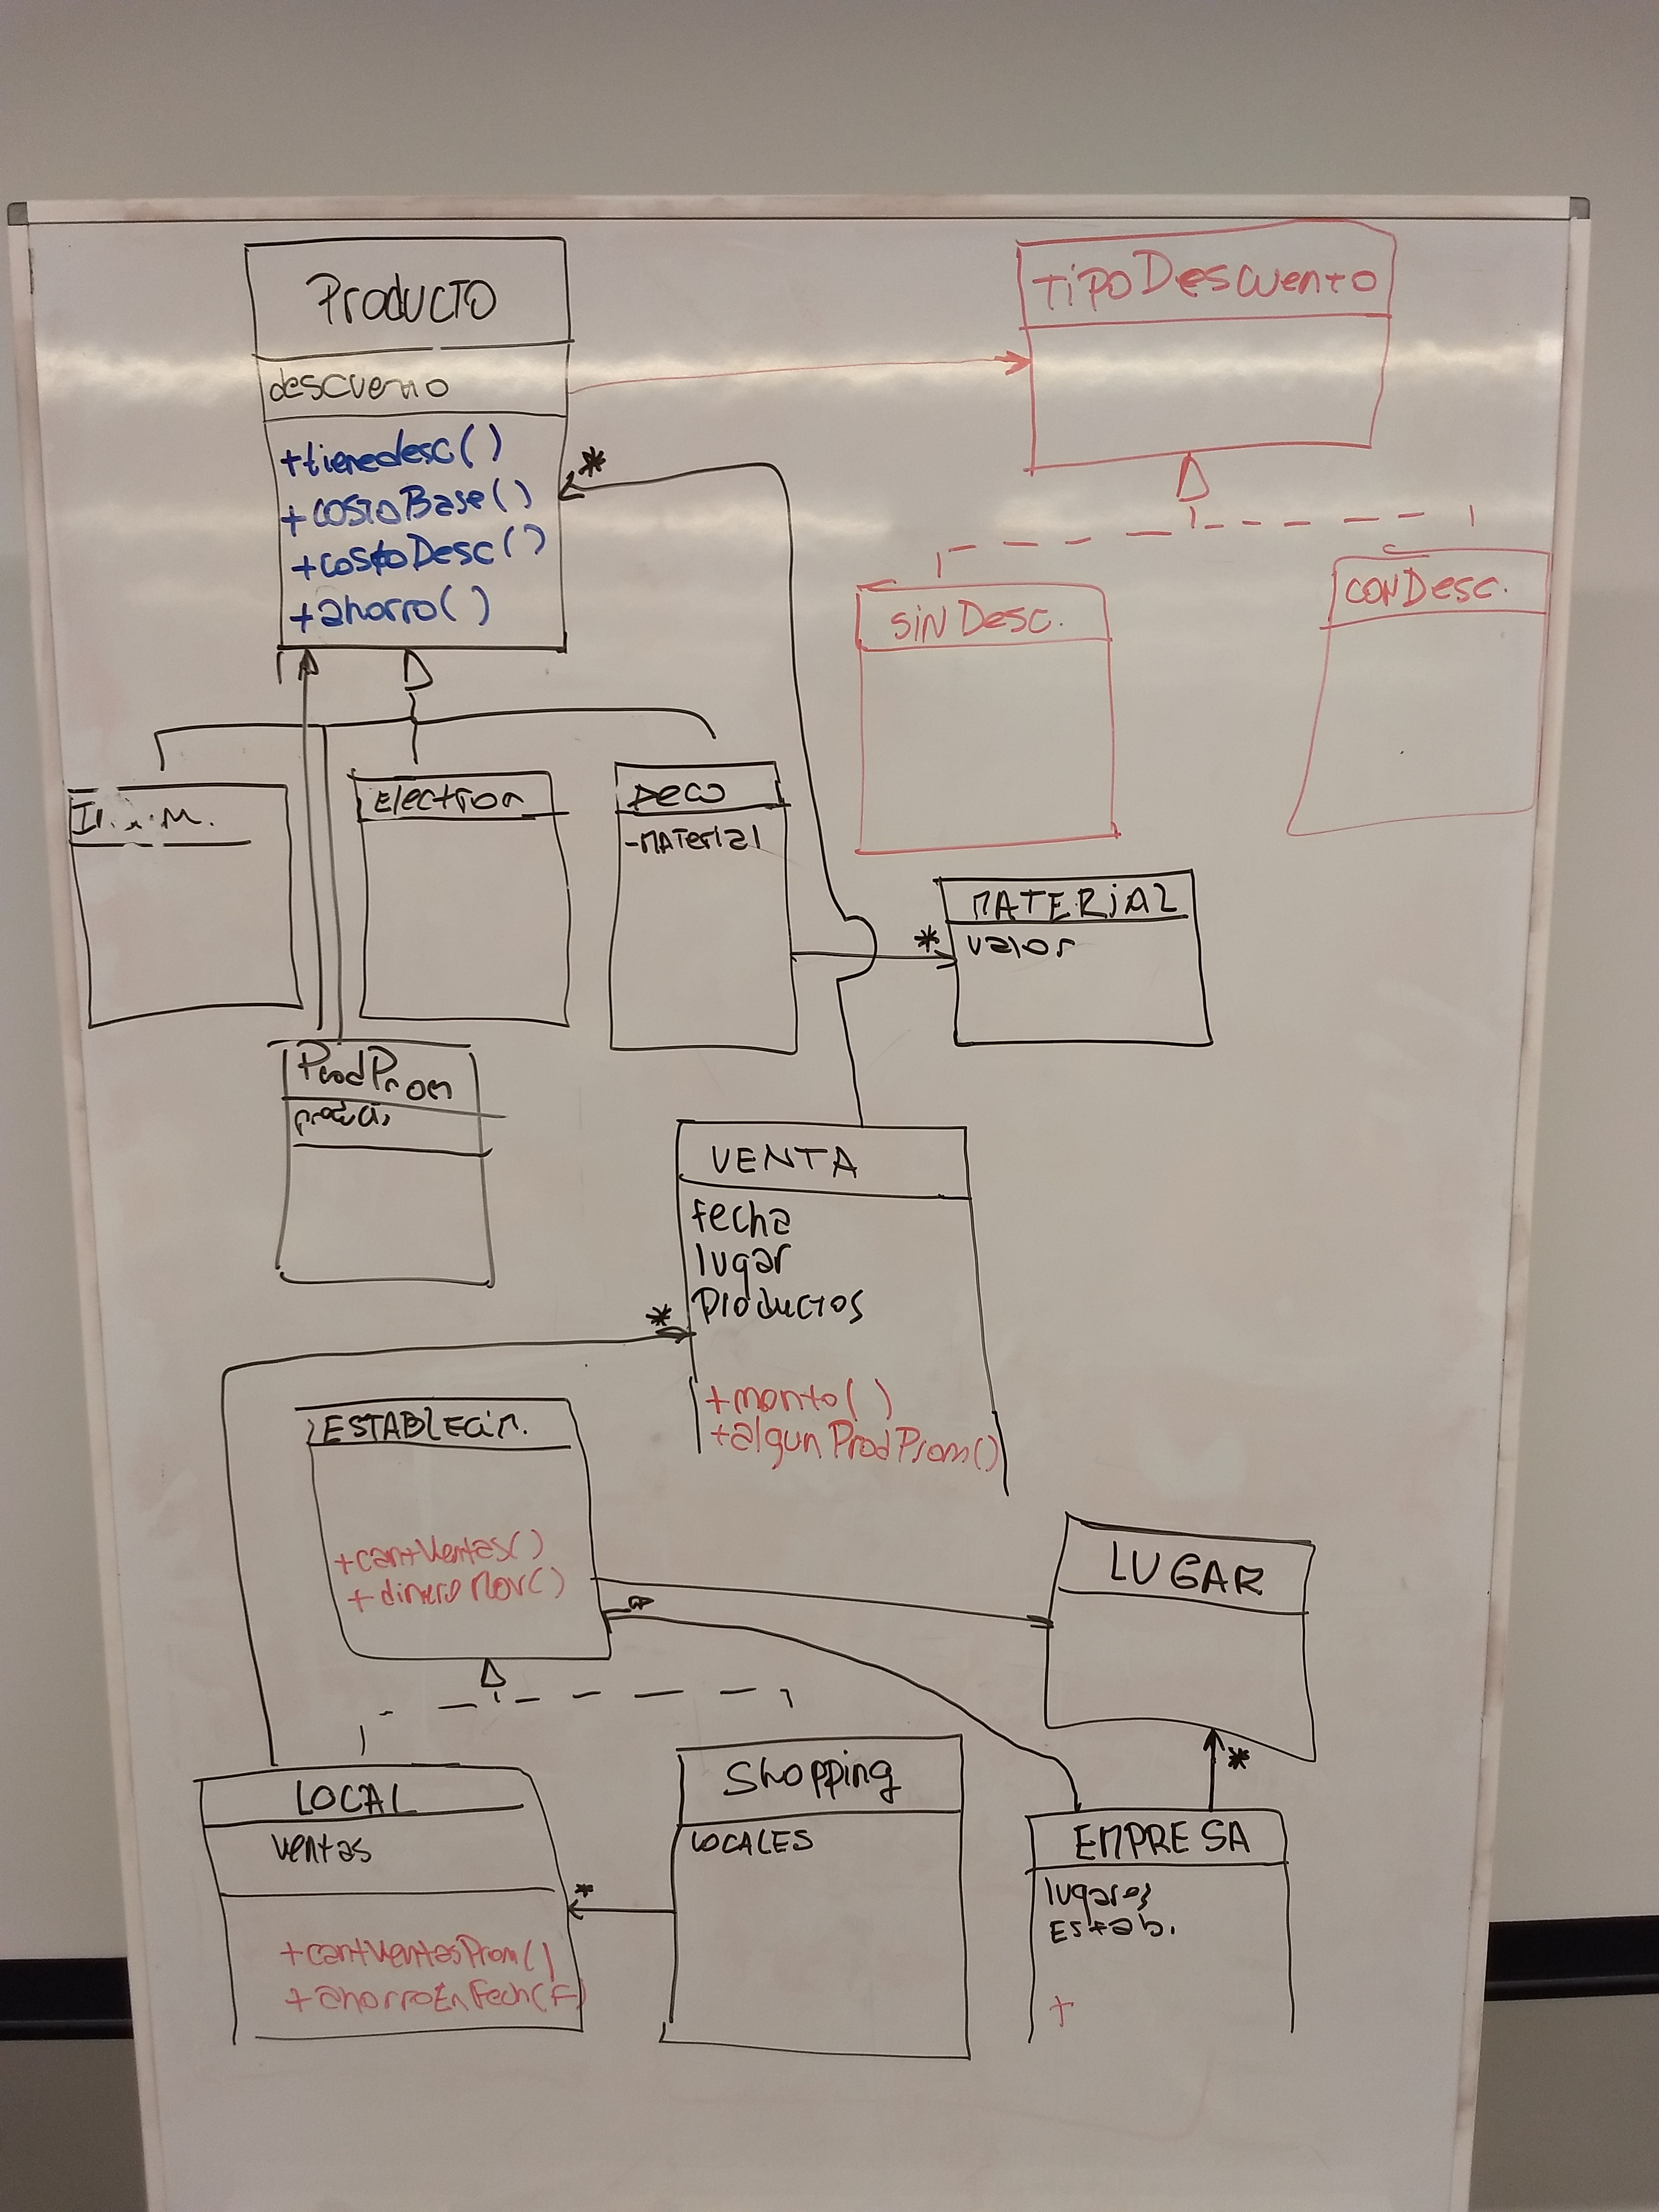 Producto
descuento
+tienedesc()
+costoBase()
+costoDesc()
+ahorro()
TipoDescuento
*
sin Desc.
conDesc.
Electron
Deco
-Material
MATERIAL
valor
*
ProdProm
VENTA
fecha
lugar
Productos
+monto()
+algunProdProm()
*
ESTABLECIM.
+cantVentas()
+dineroMov()
LUGAR
*
LOCAL
ventas
+cantVentasProm()
+ahorroEnFech(F)
*
Shopping
LOCALES
EMPRESA
lugares
Estab.
+